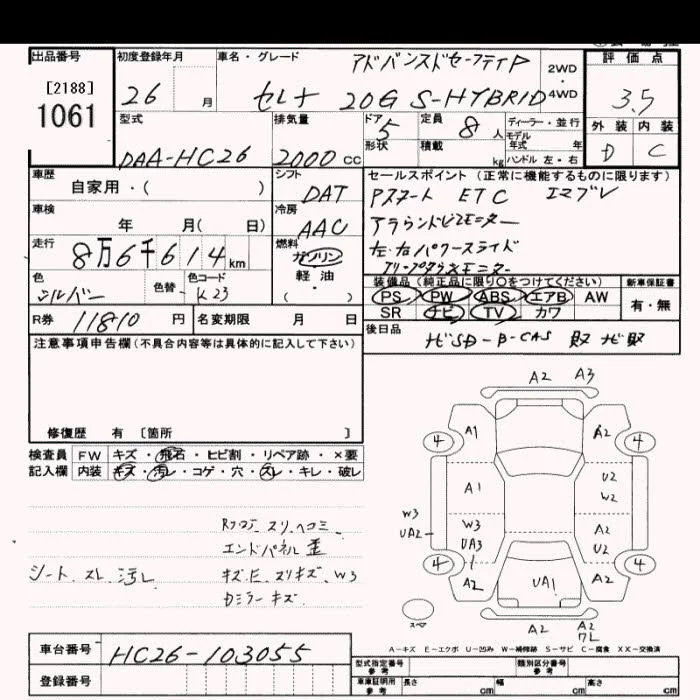 出品番号
[2188]
1061
初度登録年月
26 月
車名・グレード
アドバンスドセーフティP
セレナ 20G S-HYBRID
2WD
・
4WD
評価点
3.5
外装 内装
D C
型式
DAA-HC26
排気量
2000 cc
ドア 5
形状
定員 8 人
積載 kg
ディーラー・並行
モデル
年式 年
ハンドル 左・右
車歴
自家用・( )
シフト
DAT
車検
年 月( 日)
冷房
AAC
走行
8万6千614km
燃料
ガソリン
軽・油
( )
色
シルバー
色替
色コード
K23
R券 11810 円
名変期限 月 日
セールスポイント(正常に機能するものに限ります)
Pスタート ETC エマブレ
アラウンドビューモニター
左・右パワースライド
装備品(純正品に限り○をつけてください)
PS PW ABS エアB AW
SR ナビ TV カワ
新車保証書
有・無
後日品
注意事項申告欄(不具合内容等は具体的に記入して下さい)
修復歴 有 〔箇所 〕
検査員
記入欄
FW キズ・飛石・ヒビ割・リペア跡・×要
内装 キズ・汚レ・コゲ・穴・スレ・キレ・破レ
エンドパネル 歪
シート スレ 汚レ
キズ.E. スリキズ. W3
Dミラー キズ
A2 A3
4 A1 A2 4
A1 U2
W2
W3
UA2
W3
UA3
A2
U2
4 A2 UA1 A2 4
スペア
A2 A2
ワレ
A-キズ E-エクボ U-凹み W-補修跡 S-サビ C-腐食 XX-交換済
車台番号 HC26-103055
登録番号
型式指定番号
参考
類別区分番号
参考
車庫証明用
参考
長さ cm 幅 cm 高さ cm